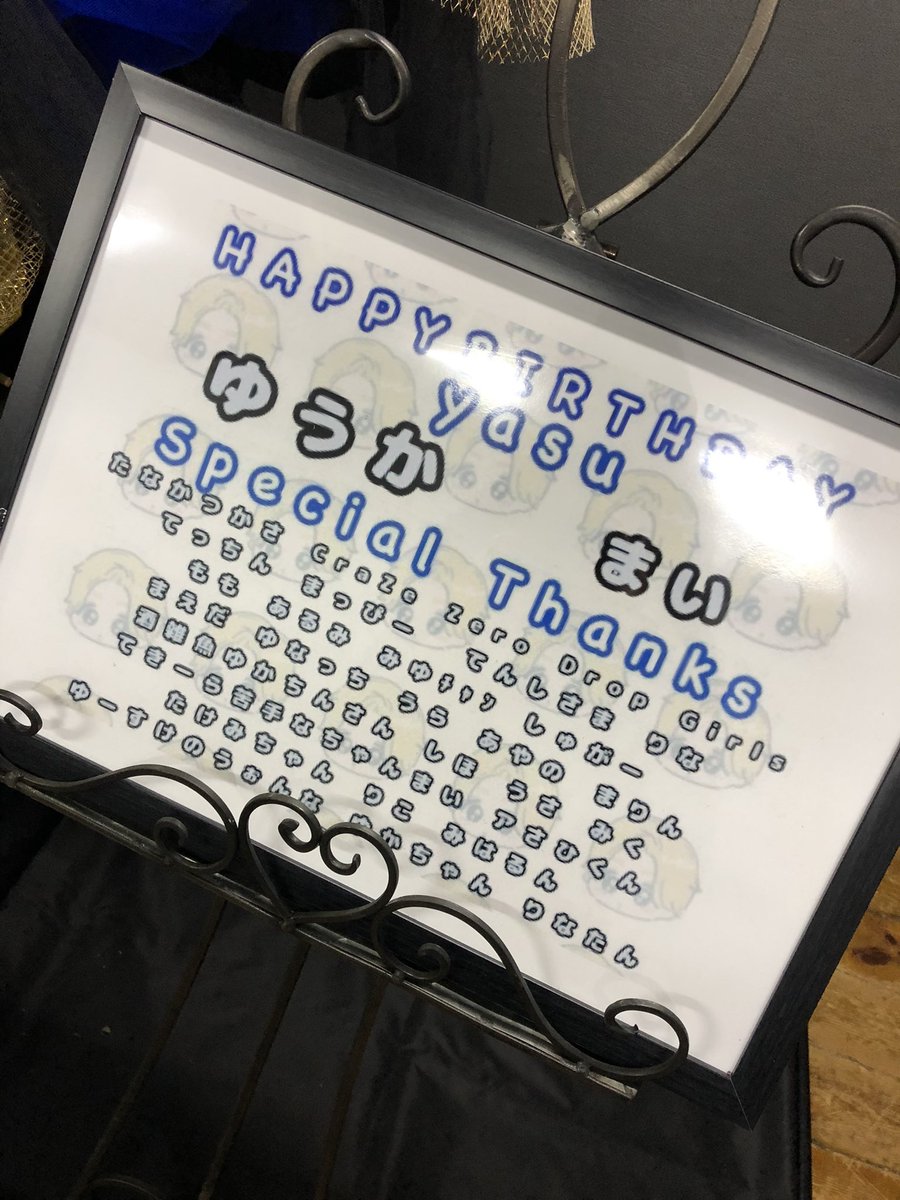 HAPPY BIRTHDAY
yasu
ゆうか まい
Special Thanks
たなかつかさ CraZe Zero Drop Girls
てっちん まっぴー てんしさま りな
もも あるみ みゆﾁｬﾝ しゅがー
まえだ ゆなっち うら あやの まりん
酒雑魚ゆかちんさん しほ うさ みく
てきーら苦手なちゃんまい アさひくん
たけみちゃん りこ みはるん
ゆーすけのうぉんな ゆかちゃん りなたん